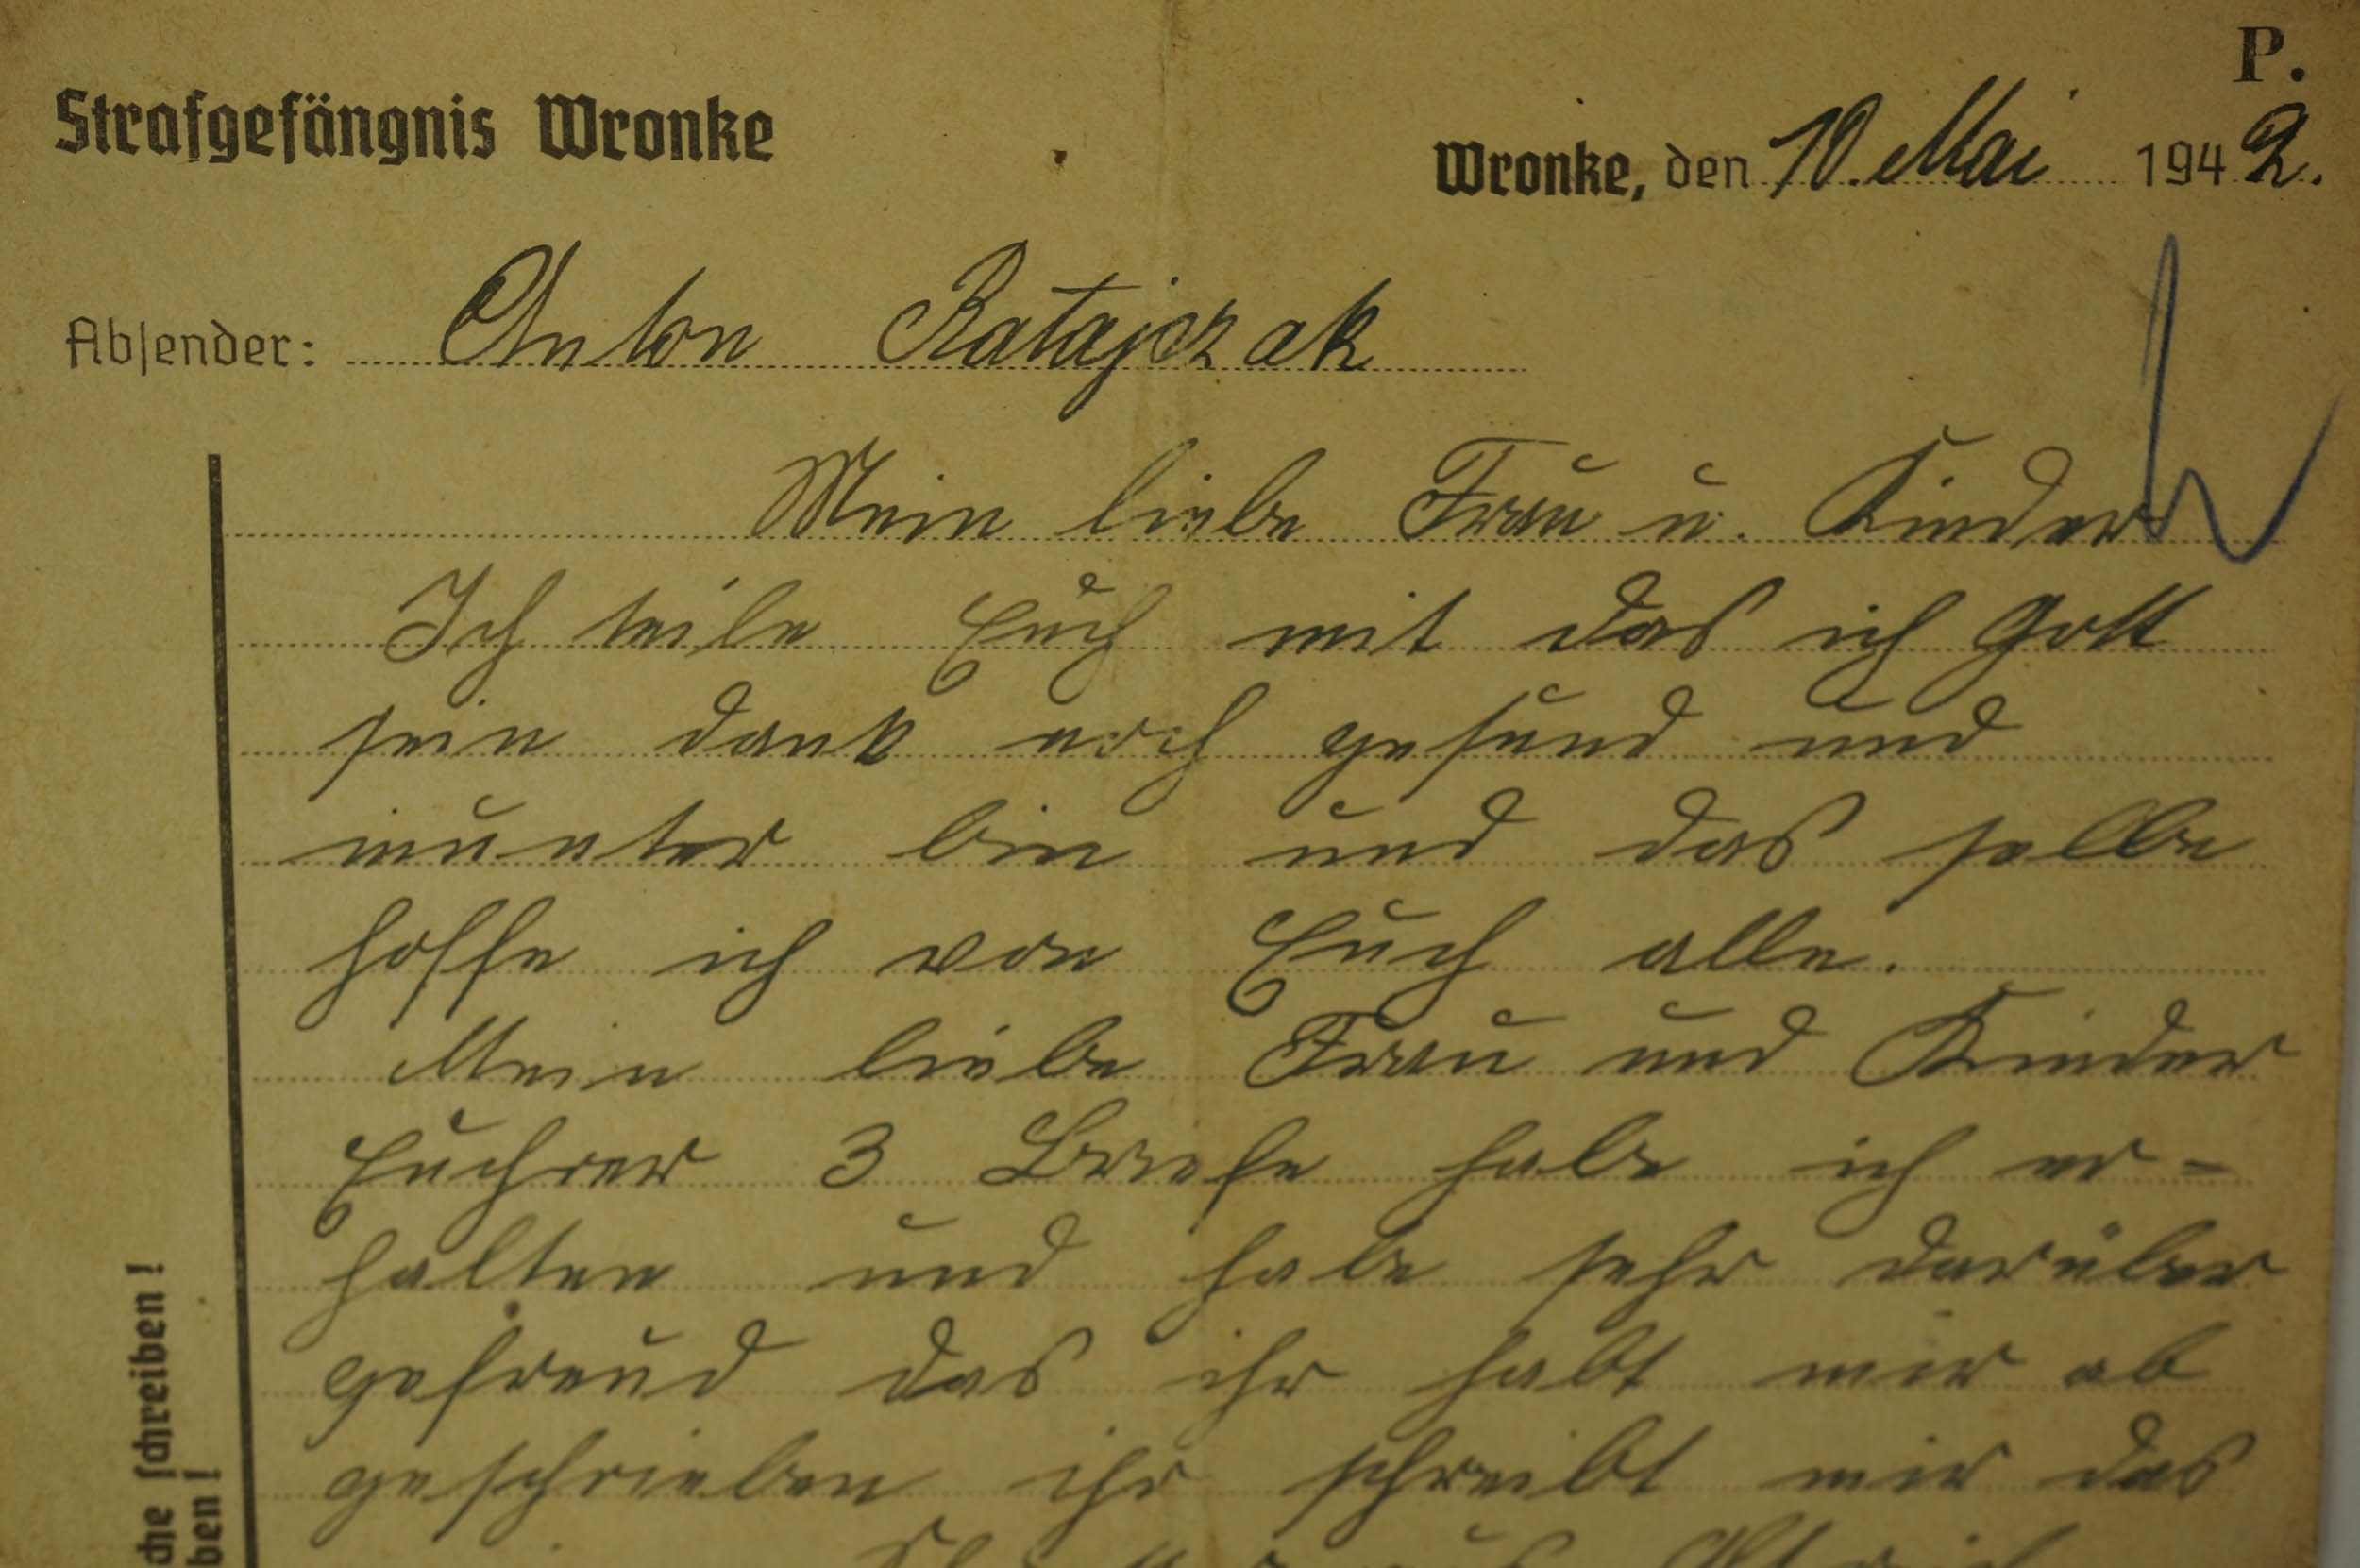 P.
Strafgefängnis Wronke
Wronke, den 10. Mai 1942.
Absender: Anton Ratajczak
Mein liebe Frau u. Kinder
Ich teile Euch mit das ich Gott
sein dank noch gesund und
munter bin und das selbe
hoffe ich von Euch alle.
Mein liebe Frau und Kinder
Euchrer 3 Briefe habe ich er-
halten und habe sehr darüber
gefreud das ihr habt mir ab
geschrieben ihr schreibt mir das
che schreiben!
ben!